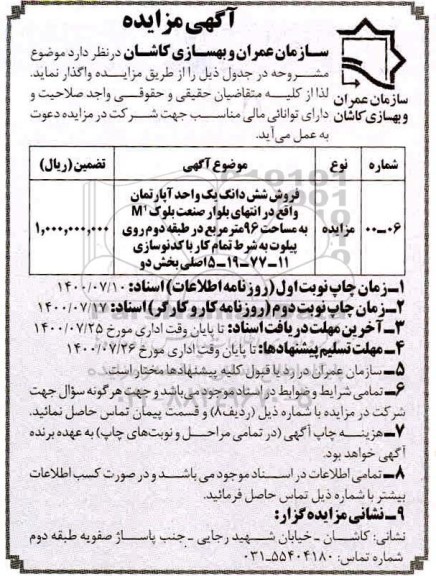 آگهی مزایده
سازمان عمران و بهسازی کاشان درنظر دارد موضوع
مشروحه در جدول ذیل را از طریق مزایده واگذار نماید.
لذا از کلیه متقاضیان حقیقی و حقوقی واجد صلاحیت و
دارای توانائی مالی مناسب جهت شرکت در مزایده دعوت
به عمل می‌آید.
سازمان عمران
و بهسازی کاشان
شماره نوع موضوع آگهی تضمین (ریال)
۰۰-۰۶ مزایده فروش شش دانگ یک واحد آپارتمان
واقع در انتهای بلوار صنعت بلوک M¹
به مساحت ۹۶ متر مربع در طبقه دوم روی
پیلوت به شرط تمام کار با کد نوسازی
۱۱-۷۷-۱۹-۵ اصلی بخش دو
۱,۰۰۰,۰۰۰,۰۰۰
۱- زمان چاپ نوبت اول (روزنامه اطلاعات) اسناد: ۱۴۰۰/۰۷/۱۰
۲- زمان چاپ نوبت دوم (روزنامه کار و کارگر) اسناد: ۱۴۰۰/۰۷/۱۷
۳- آخرین مهلت دریافت اسناد: تا پایان وقت اداری مورخ ۱۴۰۰/۰۷/۲۵
۴- مهلت تسلیم پیشنهادها: تا پایان وقت اداری مورخ ۱۴۰۰/۰۷/۲۶
۵- سازمان عمران در رد یا قبول کلیه پیشنهادها مختار است.
۶- تمامی شرایط و ضوابط در اسناد موجود می‌باشد و جهت هرگونه سؤال جهت
شرکت در مزایده با شماره ذیل (ردیف ۸) و قسمت پیمان تماس حاصل نمائید.
۷- هزینه چاپ آگهی (در تمامی مراحل و نوبت‌های چاپ) به عهده برنده
آگهی خواهد بود.
۸- تمامی اطلاعات در اسناد موجود می باشد و در صورت کسب اطلاعات
بیشتر با شماره ذیل تماس حاصل فرمائید.
۹- نشانی مزایده گزار:
نشانی: کاشان - خیابان شهید رجایی - جنب پاساژ صفویه طبقه دوم
شماره تماس: ۵۵۴۰۴۱۸۰-۰۳۱